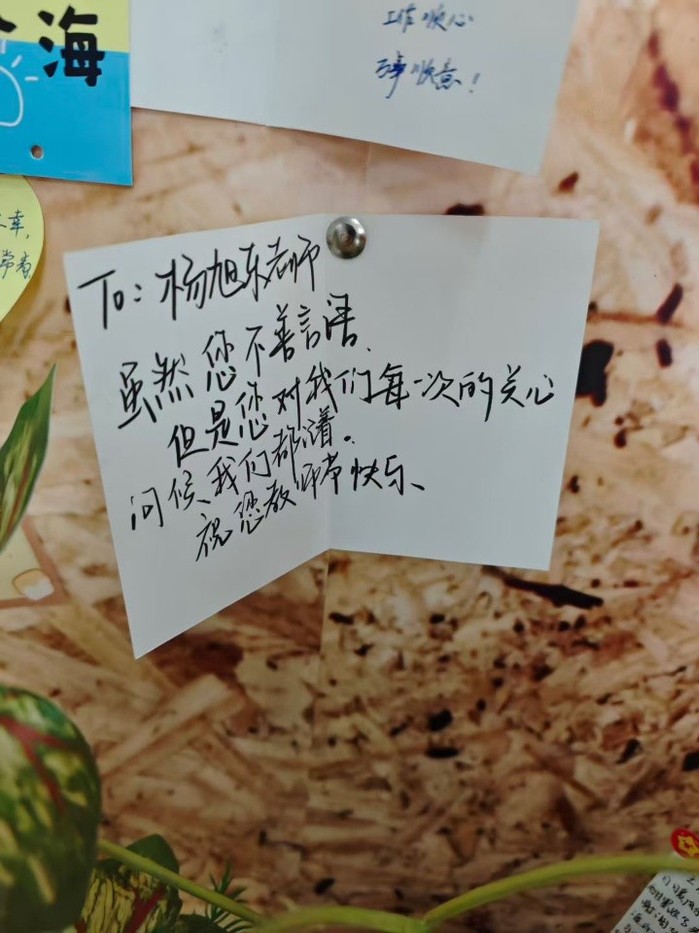 海
工作顺心
万事顺意！
幸，
To：杨旭东老师
虽然您不善言语、
但是您对我们每一次的关心
问候、我们都懂。
祝您教师节快乐、